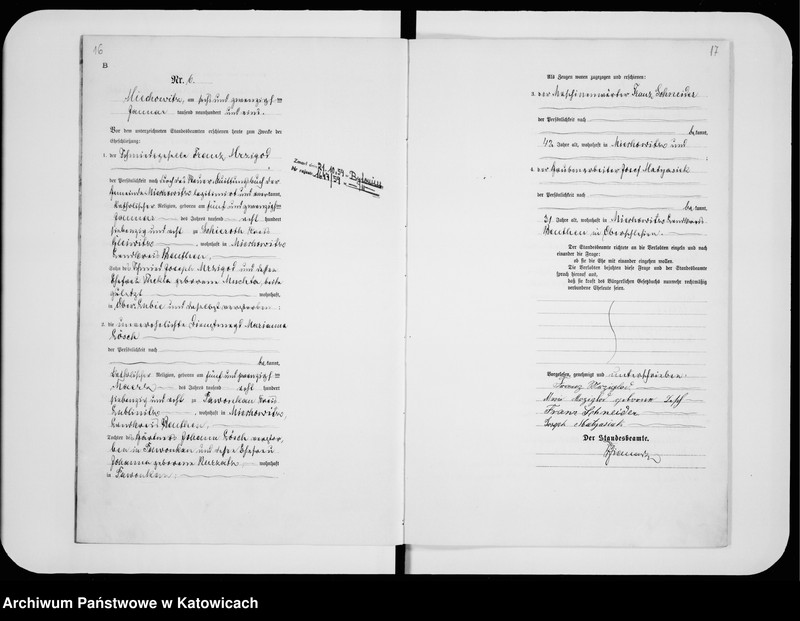 16
B
Nr. 6.
Miechowitz, am sechs und zwanzigsten
Januar tausend neunhundert und eins.
Vor dem unterzeichneten Standesbeamten erschienen heute zum Zwecke der
Eheschließung:
1. der Schmiedegeselle Franz Mrzigod
der Persönlichkeit nach durch das
Gemeinde Miechowitz legitimirt und anerkannt,
katholischer Religion, geboren am fünf und zwanzigsten
Januar des Jahres tausend acht hundert
siebenzig und acht zu Schieroth Kreis
Gleiwitz, wohnhaft in Miechowitz
Landkreis Beuthen.
Sohn des Schmied Joseph Mrzigod und dessen
Ehefrau Thekla geborene Muchta, beide
zuletzt wohnhaft
in Ober Lubie und daselbst verstorben.
2. die unverehelichte Dienstmagd Marianna
Lösch
der Persönlichkeit nach
be kannt,
katholischer Religion, geboren am fünf und zwanzigsten
des Jahres tausend acht hundert
siebenzig und acht zu Pawonkau Kreis
Lublinitz, wohnhaft in Miechowitz,
Landkreis Beuthen.
Tochter des Gärtners Johann Lösch, verstor-
ben in Pawonkau, und dessen Ehefrau
Johanna geborene wohnhaft
in Pawonkau.
17
Als Zeugen waren zugezogen und erschienen:
3. der Maschinenwärter Franz Schneider
der Persönlichkeit nach
be kannt,
42 Jahre alt, wohnhaft in Miechowitz und
4. der Grubenarbeiter Josef Matyasik
der Persönlichkeit nach
be kannt,
31 Jahre alt, wohnhaft in Miechowitz Landkreis
Beuthen in Oberschlesien.
Der Standesbeamte richtete an die Verlobten einzeln und nach
einander die Frage:
ob sie die Ehe mit einander eingehen wollen.
Die Verlobten bejahten diese Frage und der Standesbeamte
sprach hierauf aus,
daß sie kraft des Bürgerlichen Gesetzbuchs nunmehr rechtmäßig
verbundene Eheleute seien.
Vorgelesen, genehmigt und unterschrieben
Franz Mrzigod
Mrzigod geborene Lösch
Franz Schneider
Joseph Matyasik
Der Standesbeamte.
Archiwum Państwowe w Katowicach